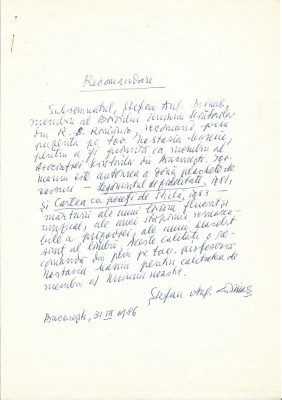 Recomandare
Subsemnatul, Ștefan Aug. Doinaș,
membru al Biroului Uniunii Scriitorilor
din R.S. România, recomand prin
prezenta pe tov. Nastasia Maniu,
pentru a fi primită ca membru al
Asociației Scriitorilor din București. Tov.
Maniu este autoarea a două plachete de
versuri – Legământul de fidelitate, 1981,
și Cartea cu poeți de sticlă, 1983 –
mărturii ale unui lirism fluent și
muzical, ale unei stăpîniri remarca-
bile a prozodiei, ale unui deosebit
simț al limbii. Aceste calități o re-
comandă din plin pe tov. profesoară
Nastasia Maniu pentru calitatea de
membru al Uniunii noastre.
Ștefan Aug. Doinaș
București, 31 III 1986